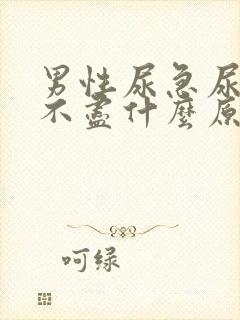 男性尿急尿
不盡什麼原
呵绿